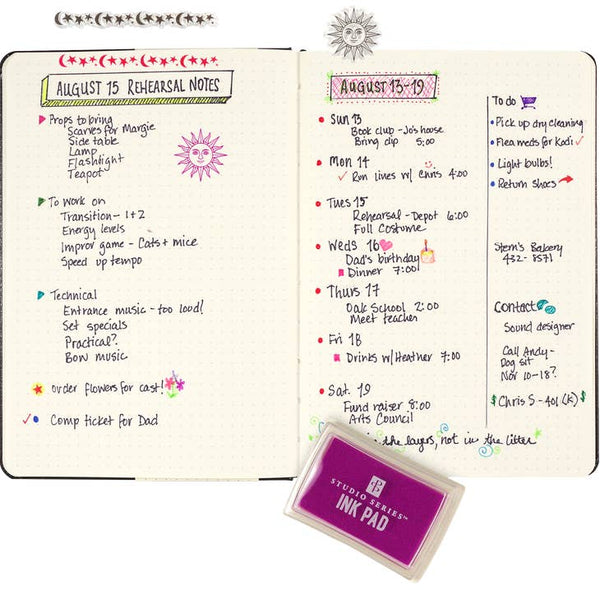 AUGUST 15 REHEARSAL NOTES
Props to bring
Scarves for Margie
Side table
Lamp
Flashlight
Teapot
To work on
Transition - 1 + 2
Energy levels
Improv game - Cats + mice
Speed up tempo
Technical
Entrance music - too loud!
Set specials
Practical?
Bow music
order flowers for cast!
Comp ticket for Dad
AUGUST 13-19
Sun 13
Book club - Jo's house
Bring dip 5:00
Mon 14
Run lines w/ Chris 4:00
Tues 15
Rehearsal - Depot 6:00
Full Costume
Weds 16
Dad's birthday
Dinner 7:00
Thurs 17
Oak School 2:00
Meet teacher
Fri 18
Drinks w/ Heather 7:00
Sat. 19
Fund raiser 8:00
Arts Council
in the layers, not in the litter"
To do
Pick up dry cleaning
Flea meds for Kodi
Light bulbs!
Return shoes
Stern's Bakery
432-8571
Contact
Sound designer
Call Andy -
Dog sit
Nov 10-18?
$ Chris S - 401 (k) $
STUDIO SERIES™
INK PAD